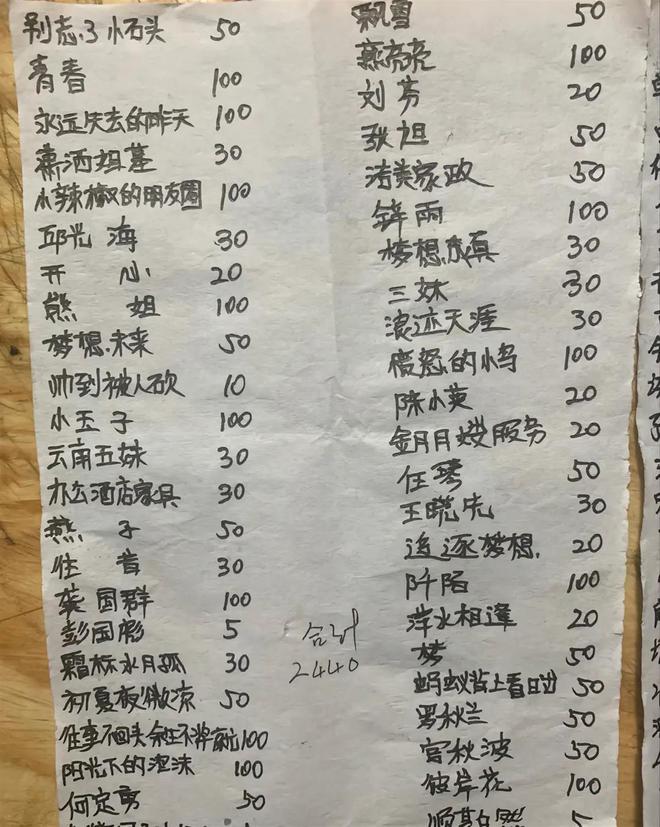 别志.了小石头 50
青春 100
永远失去的昨天 100
潇洒姐基 30
小辣椒的朋友圈 100
邱光海 30
开心 20
熊姐 100
梦想.未来 50
帅到被人砍 10
小玉子 100
云南五妹 30
办公酒店家具 30
燕子 50
往昔 30
龚国群 100
彭国彪 5
霜标水月孤 30
初夏夜微凉 50
往事不回头余生不将就 100
阳光下的泡沫 100
何定勇 50
飘雪 50
燕亮亮 100
刘芬 20
张旭 50
洁美家政 50
锌雨 100
梦想成真 30
三妹 30
浪迹天涯 30
愤怒的小鸟 100
陈小英 20
金月月嫂服务 20
任琴 50
王晓先 30
追逐梦想. 20
阡陌 100
萍水相逢 20
梦 50
蚂蚁背上看日出 50
罗秋兰 50
宫秋波 50
彼岸花 100
顺其自然 5
合计
2440